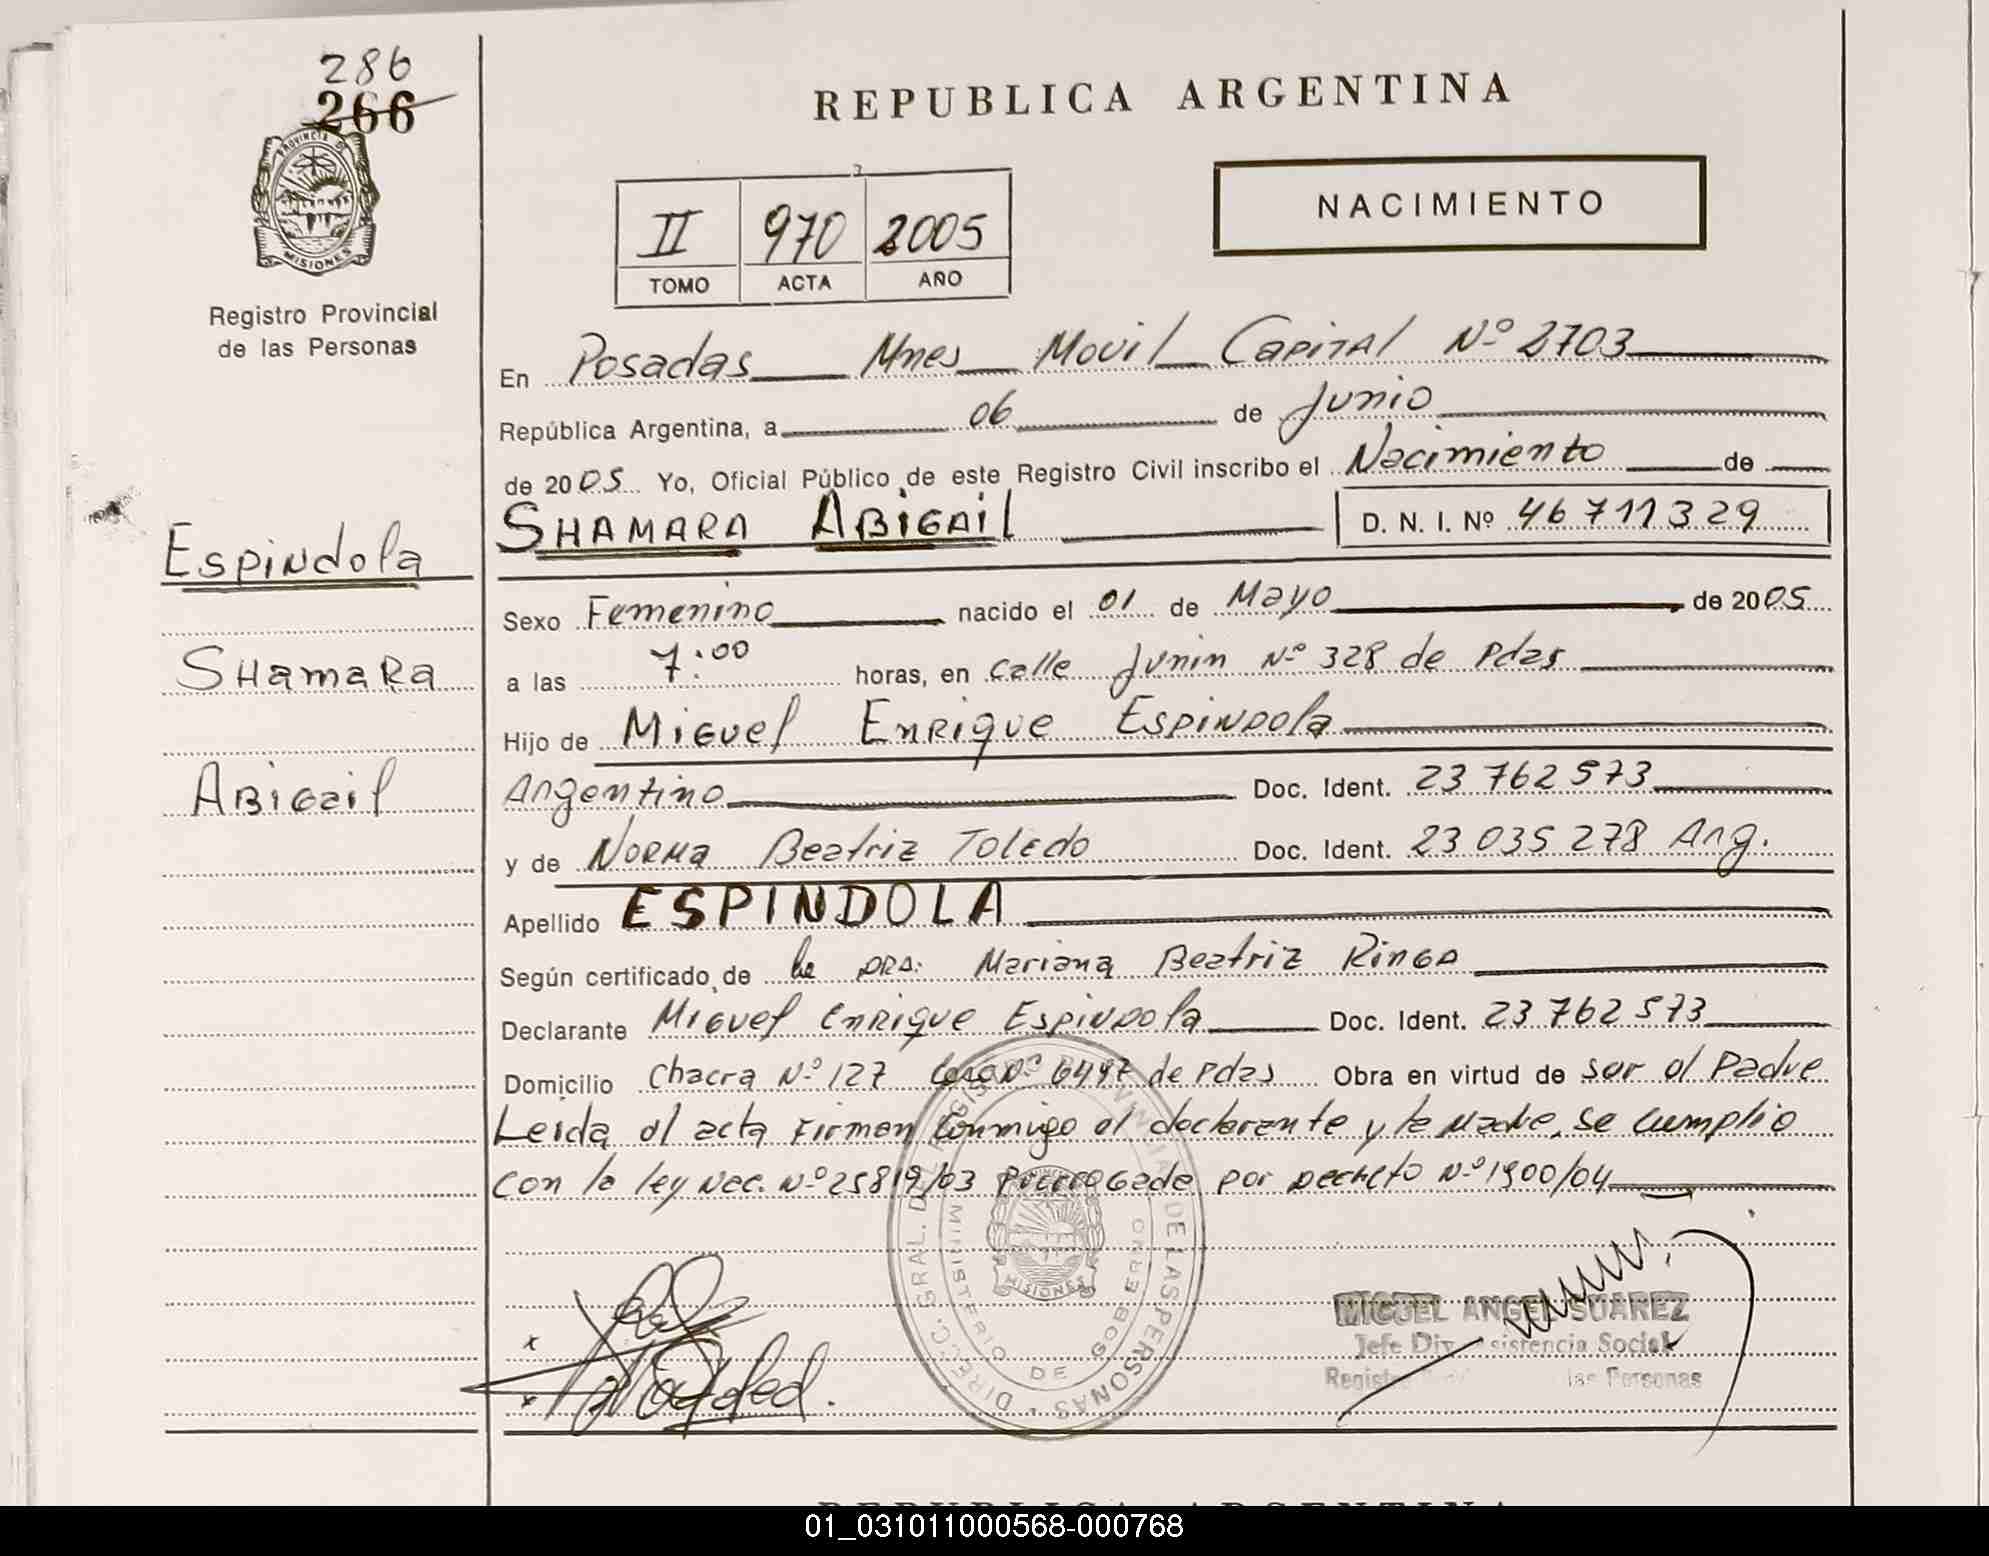 286
266
REPUBLICA ARGENTINA
PROVINCIA DE
MISIONES
NACIMIENTO
II 970 2005
TOMO ACTA AÑO
Registro Provincial
de las Personas
En Posadas Mnes Movil Capital Nº 2703
República Argentina, a 06 de Junio
de 2005 Yo, Oficial Público de este Registro Civil inscribo el Nacimiento de
SHAMARA ABIGAIL D. N. I. Nº 46 711 329
Espindola
Sexo Femenino nacido el 01 de Mayo de 2005
Shamara
a las 7:00 horas, en calle Junin Nº 328 de Pdas
Hijo de Miguel Enrique Espindola
Abigail
Argentino Doc. Ident. 23 762 573
y de Norma Beatriz Toledo Doc. Ident. 23 035 278 Arg.
Apellido ESPINDOLA
Según certificado de la DRA: Mariana Beatriz Ringa
Declarante Miguel Enrique Espindola Doc. Ident. 23 762 573
Domicilio Chacra Nº 127 Nº 6497 de Pdas Obra en virtud de ser el Padre
Leida el acta Firman Conmigo el declarante y la Madre, se cumplio
con la ley Nac. Nº 25819/03 Prorrogada por Decreto Nº 1900/04
DIRECC. GRAL. DEL REGISTRO PROVINCIAL DE LAS PERSONAS
MINISTERIO DE GOBIERNO
MISIONES
MIGUEL ANGEL SUAREZ
Jefe Div. Asistencia Social
las Personas
REPUBLICA ARGENTINA
01_031011000568-000768